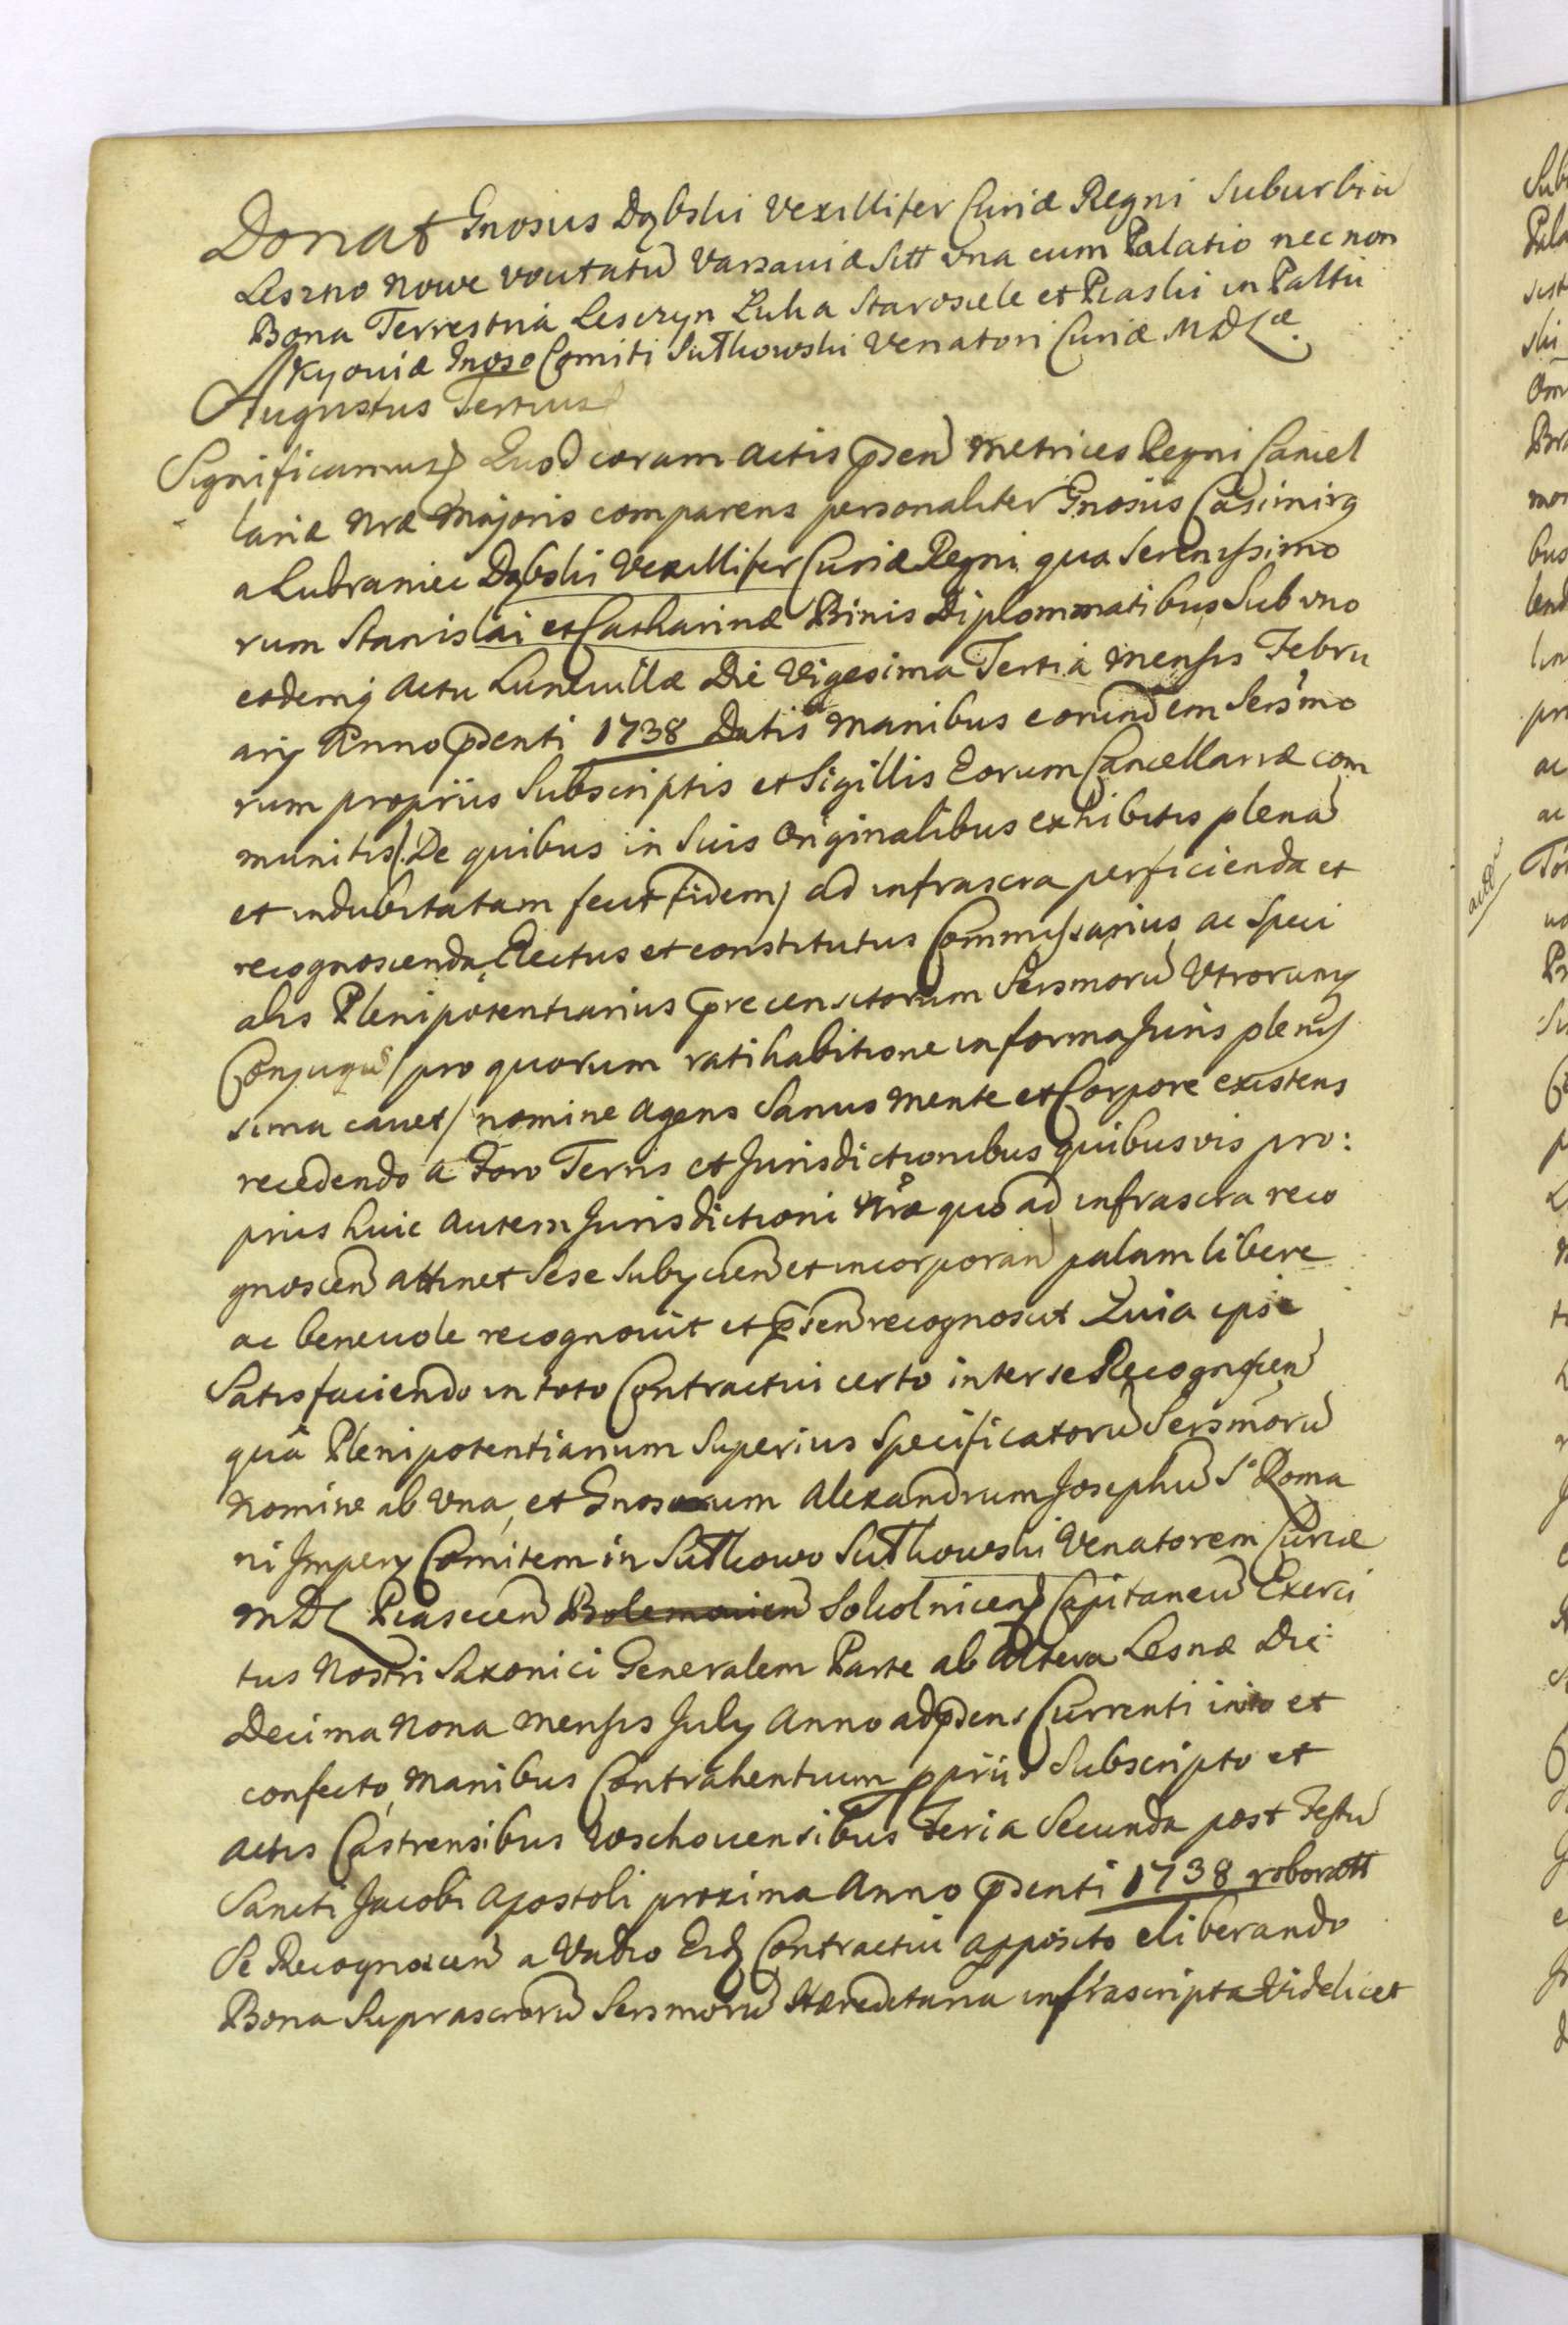 Donat Gnosus Dąbski Vexillifer Curiæ Regni Suburbiu
Leszno Nowe vocitatu Varsaviæ Sitt una cum Palatio nec non
Bona Terrestria Lesczyn Luka Starosiele et Piaski in Pallu
Kyoviæ Gnoso Comiti Sułkowski Venatori Curiæ MDLæ.
Augustus Tertius
Significamus Quod coram Actis pñsen Metrices Regni Cancel
lariæ Nræ Majoris comparens personaliter Gnosus Casimirg
a Lubraniec Dąbski Vexillifer Curiæ Regni qua Serenissimo
rum Stanislai et Catharinæ Binis Diplommatibus Sub uno
eodemq Actu Lunevillæ Die Vigesima Tertia Mensis Febru
arij Anno psenti 1738 Datis Manibus eorundem Sersmo
rum propriis Subscriptis et Sigillis Eorum Cancellariæ com
munitis /: De quibus in Suis Originalibus exhibitis plena
et indubitatam fecit fidem / ad infrascra perficienda et
recognoscenda Electus et constitutus Commissarius ac Speci
alis Plenipotentiarius præcensitorum Sersmoru Utrorumq
Conjugu / pro quorum ratihabitione in forma Juris plenis
sima cavet / nomine Agens Sanus Mente et Corpore existens
recedendo a Foro Terris et Jurisdictionibus quibusvis pro:
priis huic autem Jurisdictioni Nræ quo ad infrascra reco
gnoscen attinet Sese Subijcien et incorporan palam libere
ac benevole recognovit et psen recognoscit Quia ipse
Satisfaciendo in toto Contractui certo inter se Recognoscen
quâ Plenipotentiarium Superius Specificatoru Sersmoru
Nomine ab Una, et Gnosum Alexandrum Josephu S. Roma
ni Impery Comitem in Sułkowo Sułkowski Venatorem Curiæ
MDL Piasecen Bolemovien Sokolnicen Capitaneu Exerci
tus Nostri Saxonici Generalem Parte ab Altera Lesnæ Die
Decima Nona Mensis July Anno ad psens Currenti inito et
confecto, Manibus Contrahentium ppriis Subscripto et
Actis Castrensibus Wschovensibus Feria Secunda post Festu
Sancti Jacobi Apostoli proxima Anno psenti 1738 roboratt
Se Recognoscen a Vadio Eid Contractui apposito eliberando
Bona Suprascroru Sersmoru Hæreditaria infrascripta Videlicet